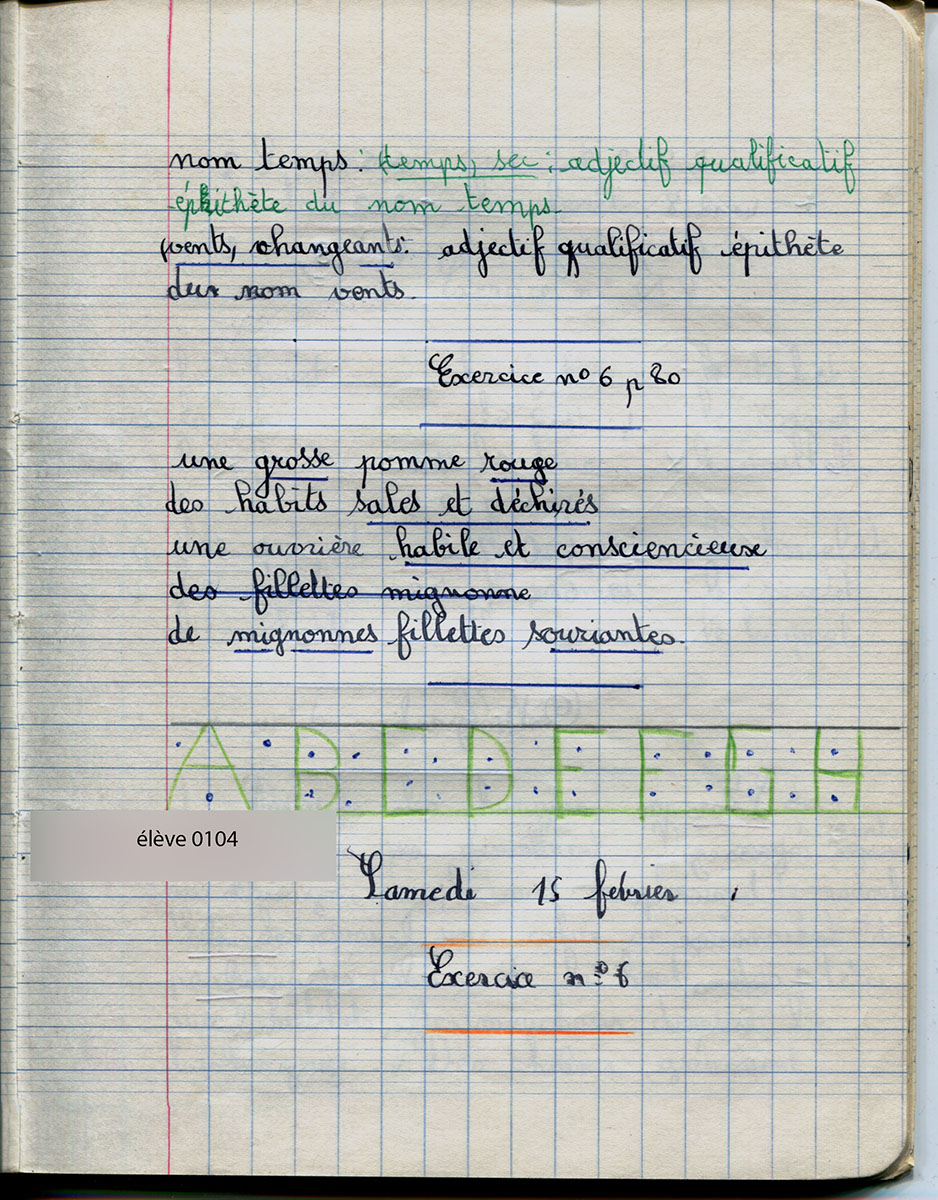 nom temps : (temps, sec : adjectif qualificatif
épithète du nom temps.
(vents, changeants: adjectif qualificatif épithète
du nom vents.
Exercice nº 6 p 80
une grosse pomme rouge
des habits sales et déchirés
une ouvrière habile et consciencieuse
des fillettes mignonne
de mignonnes fillettes souriantes.
A B C D E F G H
élève 0104
Samedi 15 febrier
Exercice nº 6